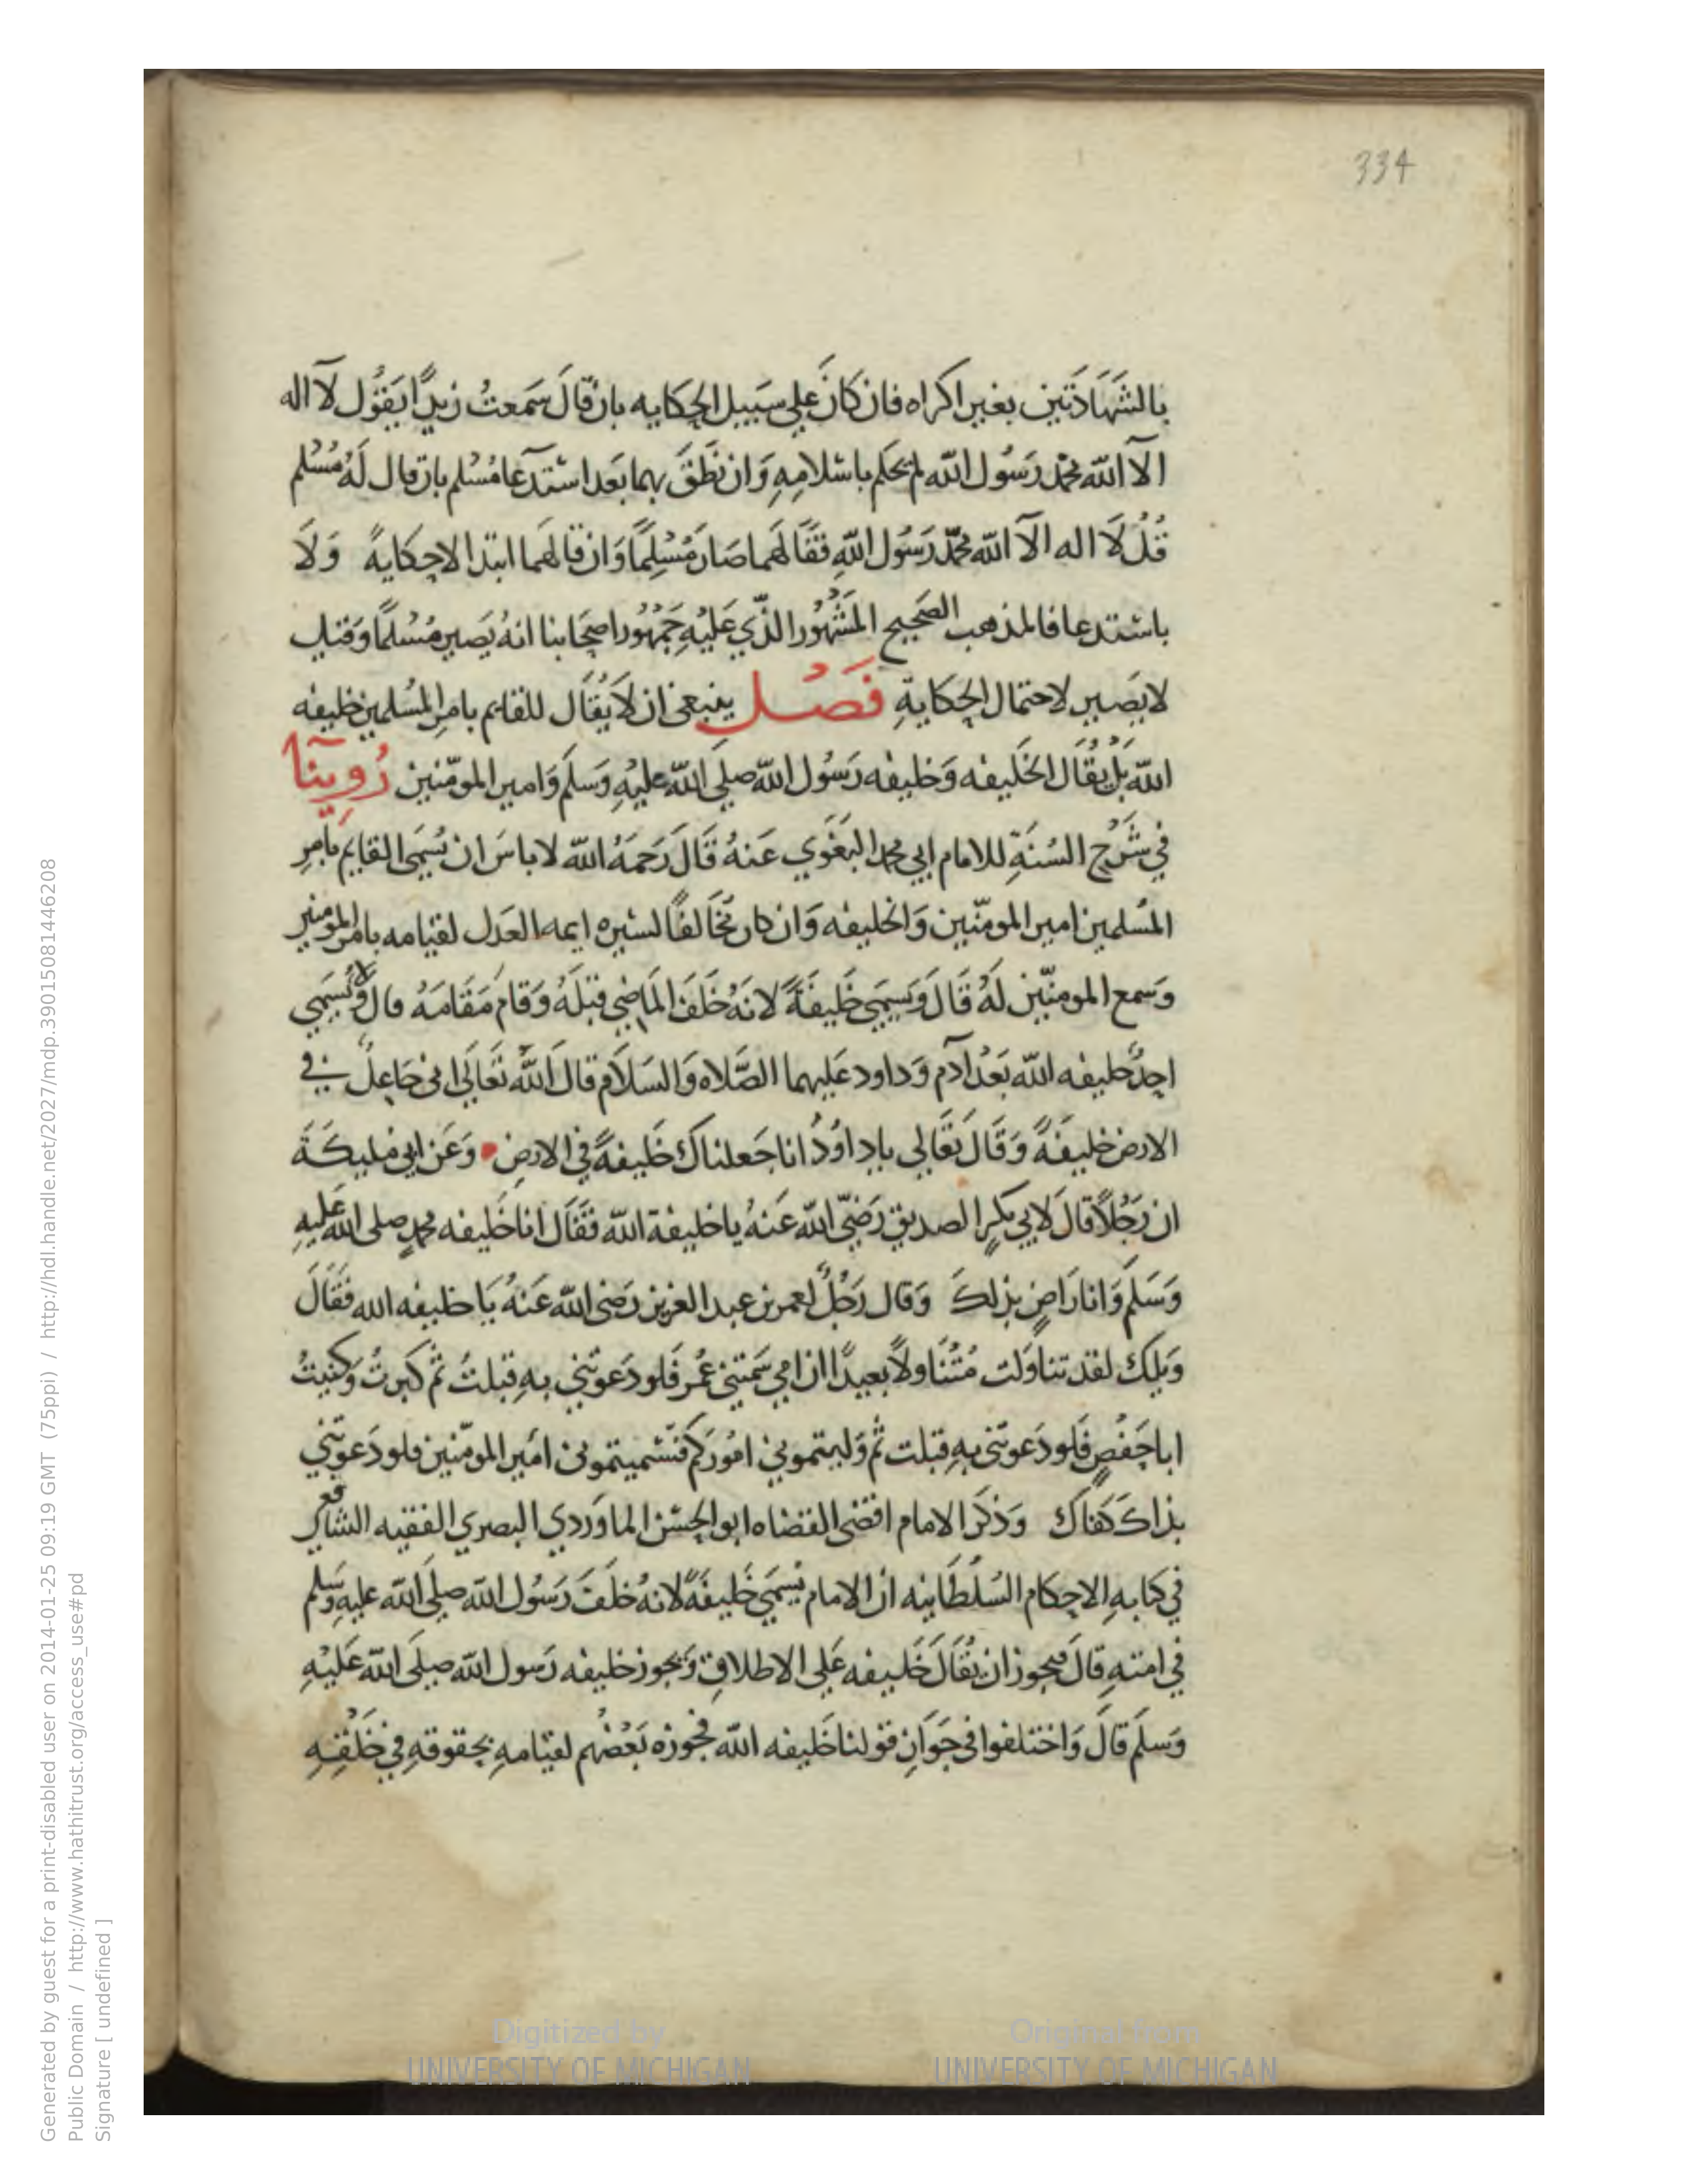 334
بالشَهَادَتين بغير اكراه فان كَانَ علي سَبيل الحِكايه بان قَالَ سَمعتُ زيدًا يَقوُل لآ اله
الآ الله محمّد رَسُول الله لم يحكم باسْلامِهِ وَان نَطَقَ بهما بَعد اسْتدعآ مُسْلم بان قال لَهُ مُسْلم
قُلْ لآ اله الآ الله محمّد رَسُول اللهِ فقَالهما صَارَ مُسْلِمًا وَان قالهما ابتدا لا حِكايةً وَلَا
باستدعا فالمذهب الصَحيح المَشْهُور الذّي عَليْهِ جَمْهُور اصحَابنا انهُ يَصير مُسْلمًا وَقيل
لا يَصير لاحتمال الحِكايةِ فَصْل ينبغى ان لَا يُقَال للقايم بامرِ المُسْلمين خليفه
الله بلْ يُقَال الخَليفه وَخليفه رَسُول الله صلي الله عليْهِ وَسَلمَ وَامير المومّنين رُوِينآ
في شَرْح السُنَةِ للامام ابي محمد البَغَوي عَنهُ قَالَ رَحمَهُ الله لا باسَ ان يُسَمّى القايم بامِر
المُسلمين امير المومّنين وَالخليفه وَان كان مُخَالفًا لسيره ايمه العَدل لقيامه بامر المومنين
وَسمع المومنّين لَهُ قَالَ وَيَسَمّي خَليفَةً لانهُ خَلَفَ المَاضِي قبْلَهُ وَقامَ مَقَامَهُ قالَ وَلا يُسَمّي
احدٌ خليفه الله بَعْدَ آدم وَداود عَليهما الصَّلاه وَالسَلَام قالَ اللهُ تَعَالَى انى جَاعِلٌ في
الارض خليفَةً وَقَالَ تَعَالي ياداوُدُ انا جَعلناكَ خَليفةً في الارضِ وَعَن ابي مليكَةَ
ان رَجُلًا قَالَ لابي بكرٍ الصديق رَضيّ الله عَنهُ يا خليفة الله فقَالَ انا خَليفه محمدٍ صلى الله عَليهِ
وَسَلمَ وَانا رَاضٍ بذلكَ وَقال رَجُلٌ لعمر بن عبد العزيز رَضي الله عَنهُ يَا خليفه الله فقَالَ
وَيلكَ لقد تناوَلت مُتنَاولًا بعيدًا ان امي سَمتني عُمر فَلو دَعوتَني بهِ قبلتُ ثم كبرتُ وَكنيتُ
ابا حَفصٍ فَلو دَعوتنى بهِ قبلت ثم وَليتموني امُورَكم فسَميتمونى امَير المومّنين فلو دَعوتني
بذاكَ كفاكَ وَذكَرَ الامام اقضى القضاه ابو الحِسْن الماوَردي البصري الفقيه الشافعي
في كتابهِ الاحكام السُلطَانيه ان الامام يُسَمّي خَليفَةً لانهُ خلَفَ رَسُول الله صلى الله عليهِ وَسَلم
في امتهِ قالَ فيجوز ان يُقَالَ خَليفه عَلي الاطلاقِ وَيجوز خليفه رَسول الله صلى الله عَليْهِ
وَسلمَ قَالَ وَاختلفوا في جَوَازِ قولنا خَليفه الله فجوزه بَعْضُهم لقيامهِ بحقوقهِ في خَلْقِهِ
Generated by guest for a print-disabled user on 2014-01-25 09:19 GMT (75ppi) / http://hdl.handle.net/2027/mdp.39015081446208
Public Domain / http://www.hathitrust.org/access_use#pd
Signature [ undefined ]
Digitized by
UNIVERSITY OF MICHIGAN
Original from
UNIVERSITY OF MICHIGAN